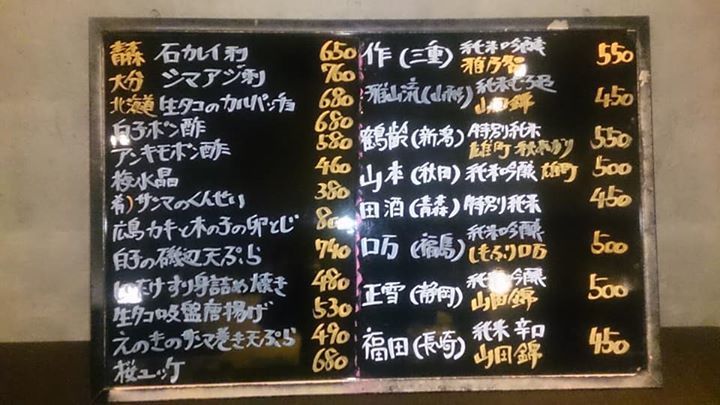 青森 石カレイ刺 650
大分 シマアジ刺 760
北海道 生タコのカルパッチョ 680
白子ポン酢 680
アンキモポン酢 580
梅水晶 460
サンマのくんせい 380
広島カキと木の子の卵とじ
白子の磯辺天ぷら 740
しいたけすり身詰め焼き 480
生タコ吸盤唐揚げ 530
えのきのサンマ巻き天ぷら 490
桜ユッケ 680
作(三重) 純米吟醸 雅乃智 550
雅山流(山形) 純米 山田錦 450
鶴齢(新潟) 特別純米 雄町 550
山本(秋田) 純米吟醸 雄町 500
田酒(青森) 特別純米 450
ロ万(福島) 純米吟醸 しもふりロ万 500
正雪(静岡) 純米吟醸 山田錦 500
福田(長崎) 純米 辛口 山田錦 450